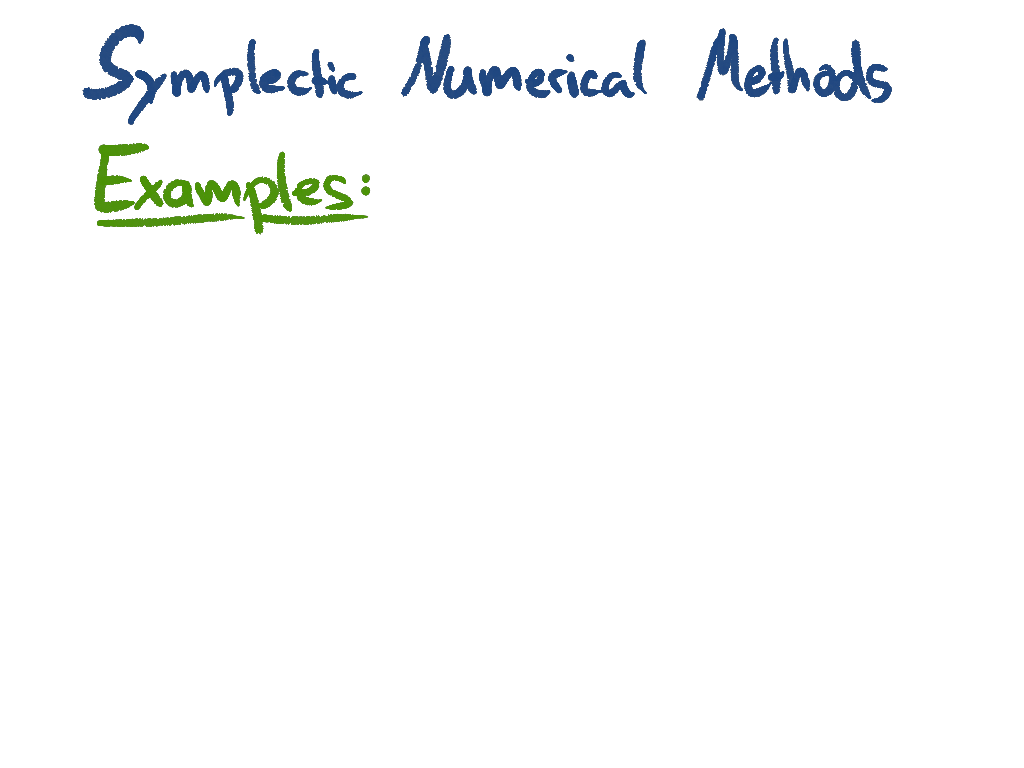 Symplectic Numerical Methods
Examples: